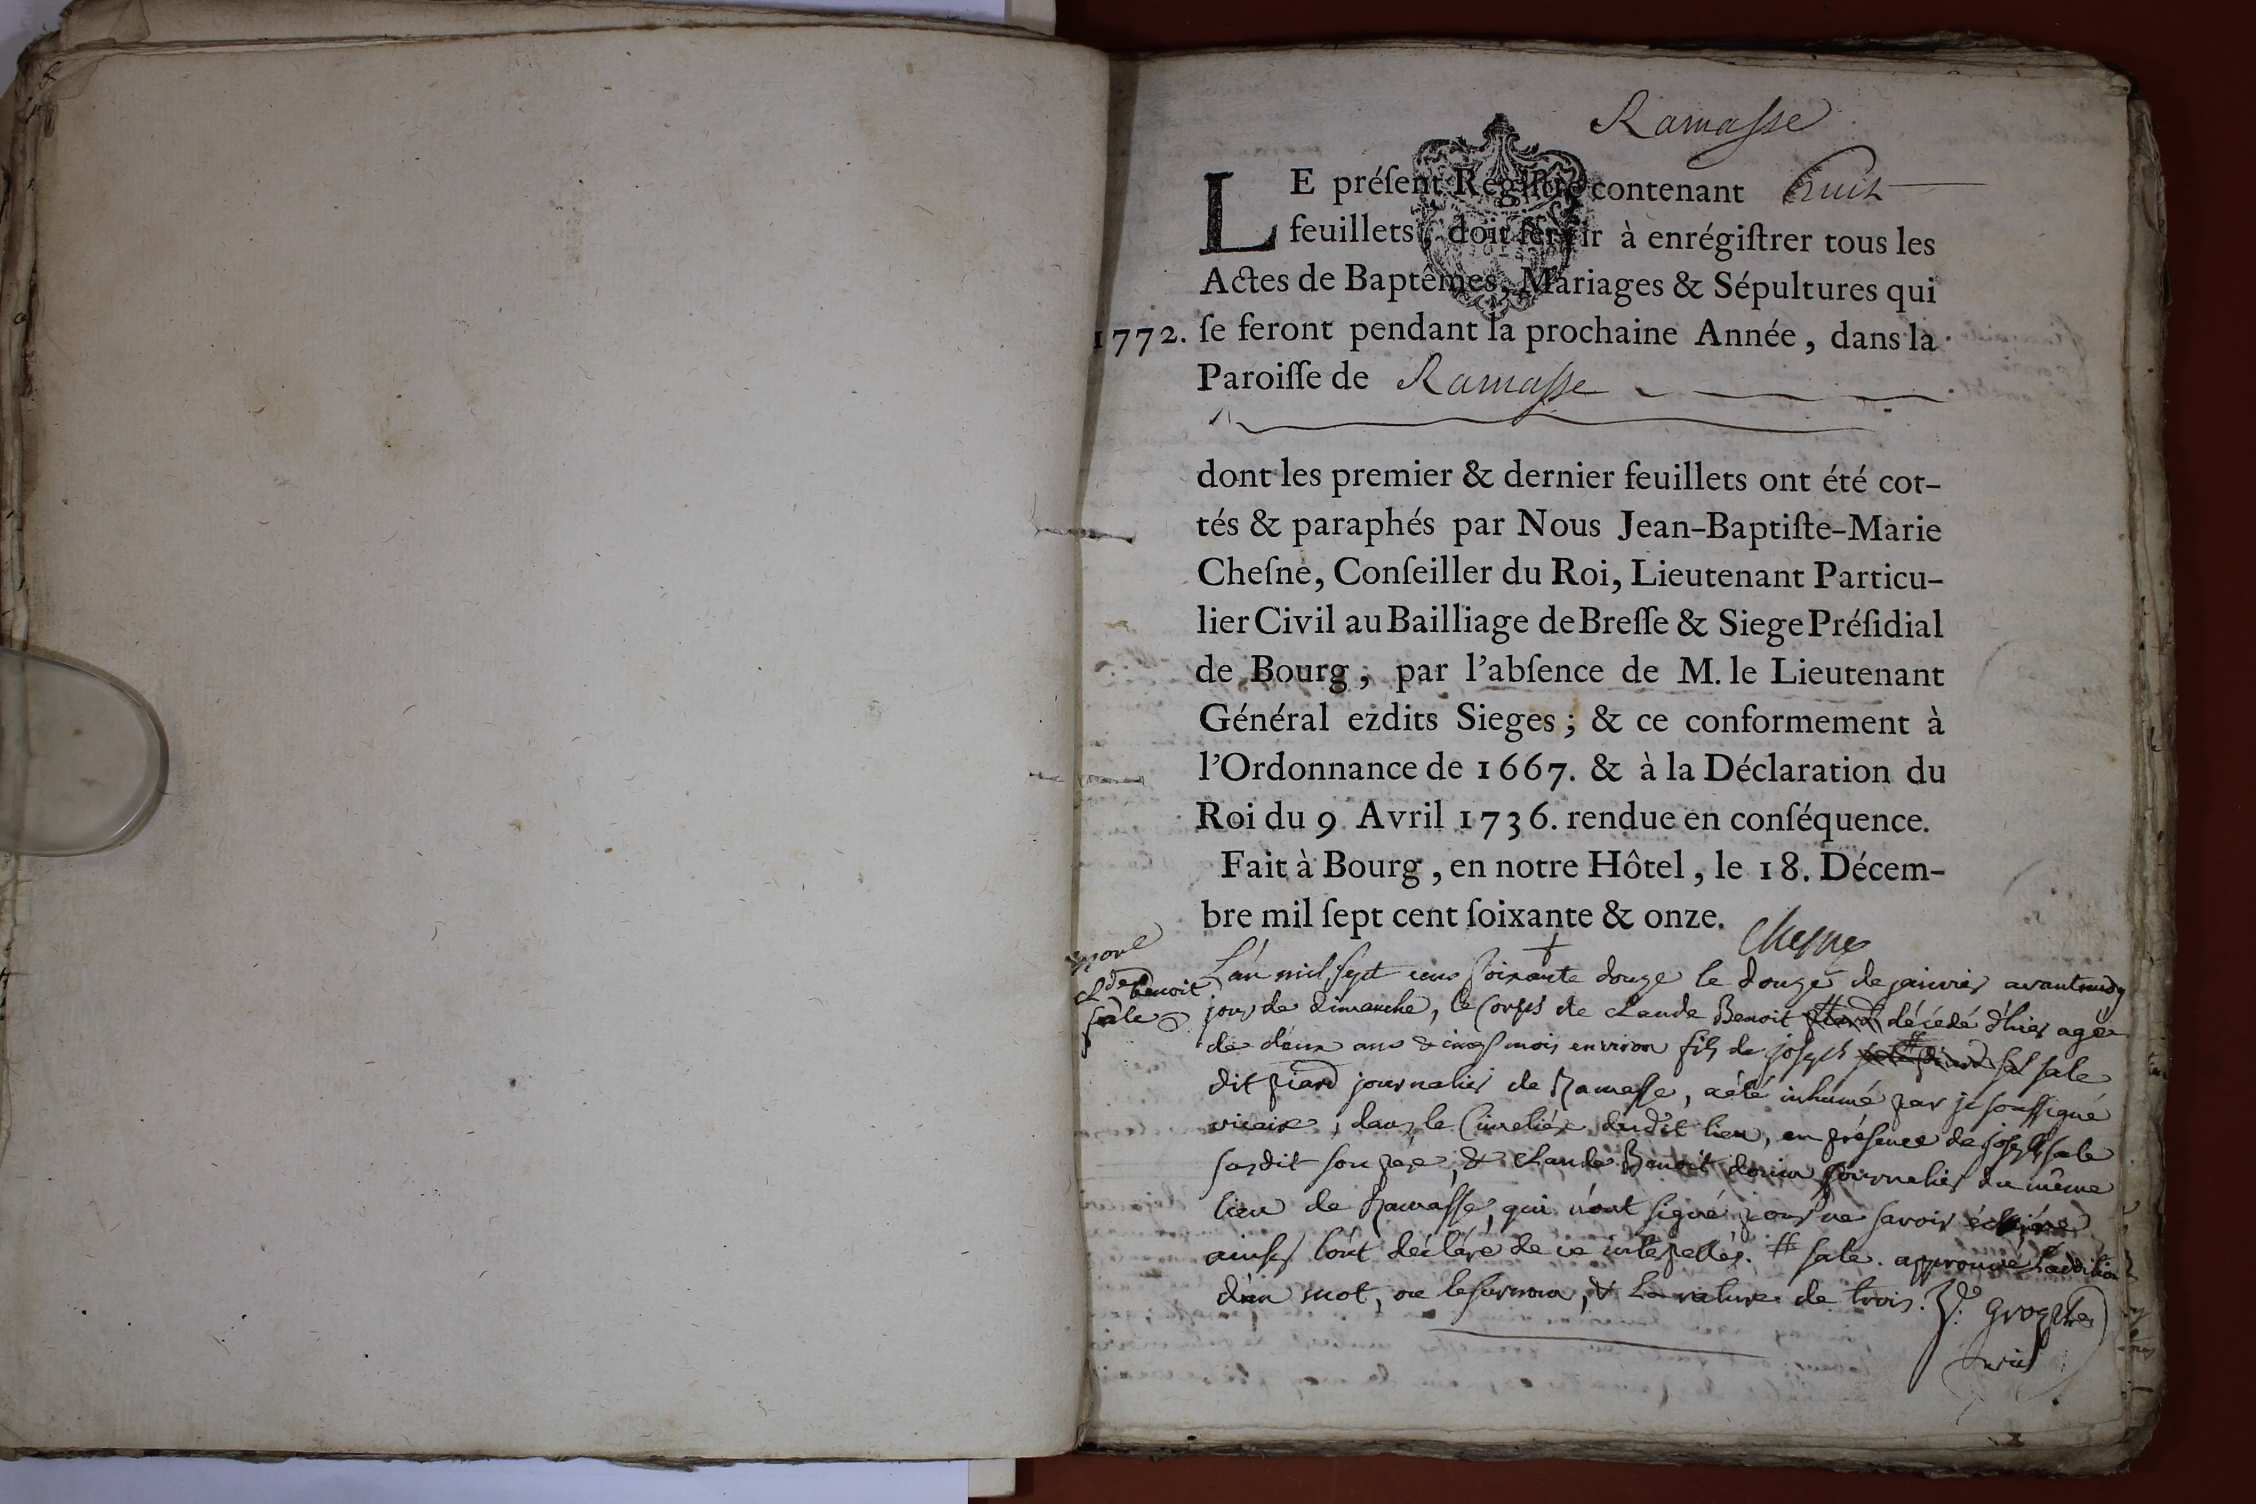 Ramasse
LE préſent Regiſtre contenant huit
feuillets, doit ſervir à enrégiſtrer tous les
Actes de Baptêmes, Mariages & Sépultures qui
1772. ſe feront pendant la prochaine Année, dans la
Paroiſſe de Ramasse
dont les premier & dernier feuillets ont été cot-
tés & paraphés par Nous Jean-Baptiſte-Marie
Cheſne, Conſeiller du Roi, Lieutenant Particu-
lier Civil au Bailliage de Breſſe & Siege Préſidial
de Bourg, par l'abſence de M. le Lieutenant
Général ezdits Sieges; & ce conformement à
l'Ordonnance de 1667. & à la Déclaration du
Roi du 9 Avril 1736. rendue en conſéquence.
Fait à Bourg, en notre Hôtel, le 18. Décem-
bre mil ſept cent ſoixante & onze.
Chesne
mort
Cl.de benoit
sale
L'an mil sept cens soixante douze le douze de janvier avant midy
jour de dimanche, le corps de claude Benoit décédé d'hier agée
de deux ans & cinq mois environ fils de joseph sale
dit piard journalier de Ramasse, a été inhumé par je soussigné
vicaire, dans le Cimetiére dudit lieu, en présence de joseph sale
susdit son pere, & claude Benoit journalier du même
lieu de Ramasse, qui n'ont signé pour ne savoir écrire
ainsy l'ont déclaré de ce interpellés. # sale. approuvé l'addition
d'un mot, ou le surnom, & la rature de trois.
vic